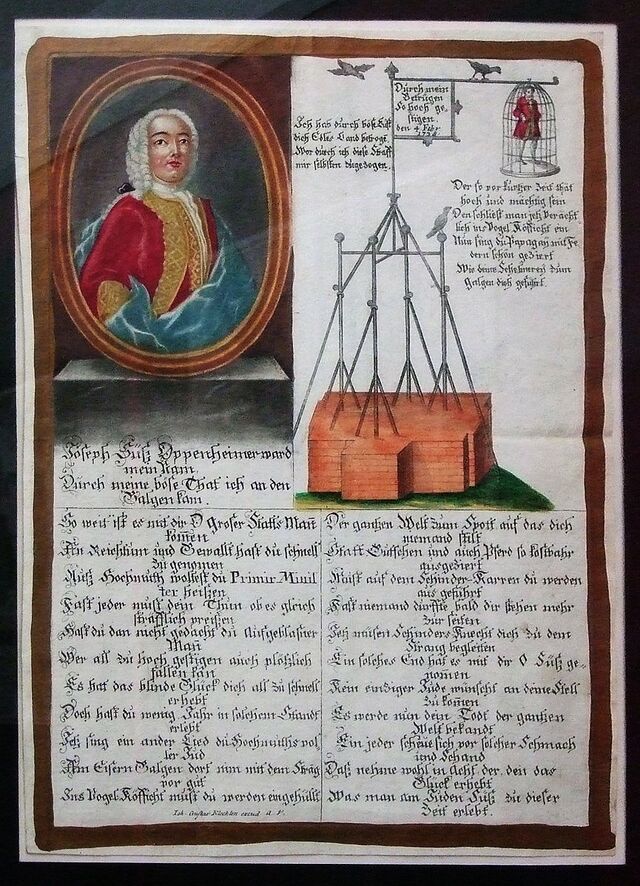 Durch mein
Betrügen
so hoch ge=
stigen.
den 4 Febr
1738
Ich hab durch böse List
dich Edles Land betrogt.
Wor durch ich diese Straff
mir selbsten zugezogen.
Der so vor kurtzer Zeit that
hoch und mächtig sein
Den schliest man jetz verächt
lich ins Vogel Kefficht ein
Nun sing du Papagey mit Fe
dern schön geziert
Wie deine Schelmereÿen zum
galgen dich geführt.
Joseph Süß Oppenheimer ward
mein Nam.
Durch meine böse That ich an den
Galgen kam.
So weit ist es mit dir O groser Staats Mañ
komen
An Reichtum und Gewallt hast du schnell
zu genomen
Auß Hochmuth woltest du Primir Minis
ter heisen
Fast jeder must dein Thun ob es gleich
sträfflich preisen
Hast du dan nicht gedacht du Aufgeblasner
Mañ
Wer all zu hoch gestigen auch plötzlich
fallen kan
Es hat das blinde Glück dich all zu schnell
erhebt
Doch hast du wenig Jahr in solchem Standt
erlebt
Jetz sing ein ander Lied du Hochmuths vol
ler Jud
Am Eisern Galgen dort nim mit dem
vor gut
Ins Vogel Kefficht must du werden eingehüllt
Der gantzen Welt zum Spott auf das dich
niemand stilt
Statt Gutschen und auch Pferd so kostbahr
ausgeziert
Must auf dem Schinder Karren du werden
aus geführt
Fast niemand dürffte bald dir stehen mehr
zur seiten
Ich müsen Schinders Knecht dich zu dem
Strang begleiten
Ein solches End hat es mit dir O Süß ge=
nomen
Kein einziger Jude wünscht an deine Stell
zu komen
Es werde nun dein Todt der gantzen
Welt bekandt
Ein jeder scheue sich vor solcher Schmach
und Schand
Daß nehme wohl in Acht der, den das
Glück erhebt
Was man am Juden Süß zu dieser
Zeit erlebt.
excud. a. V.